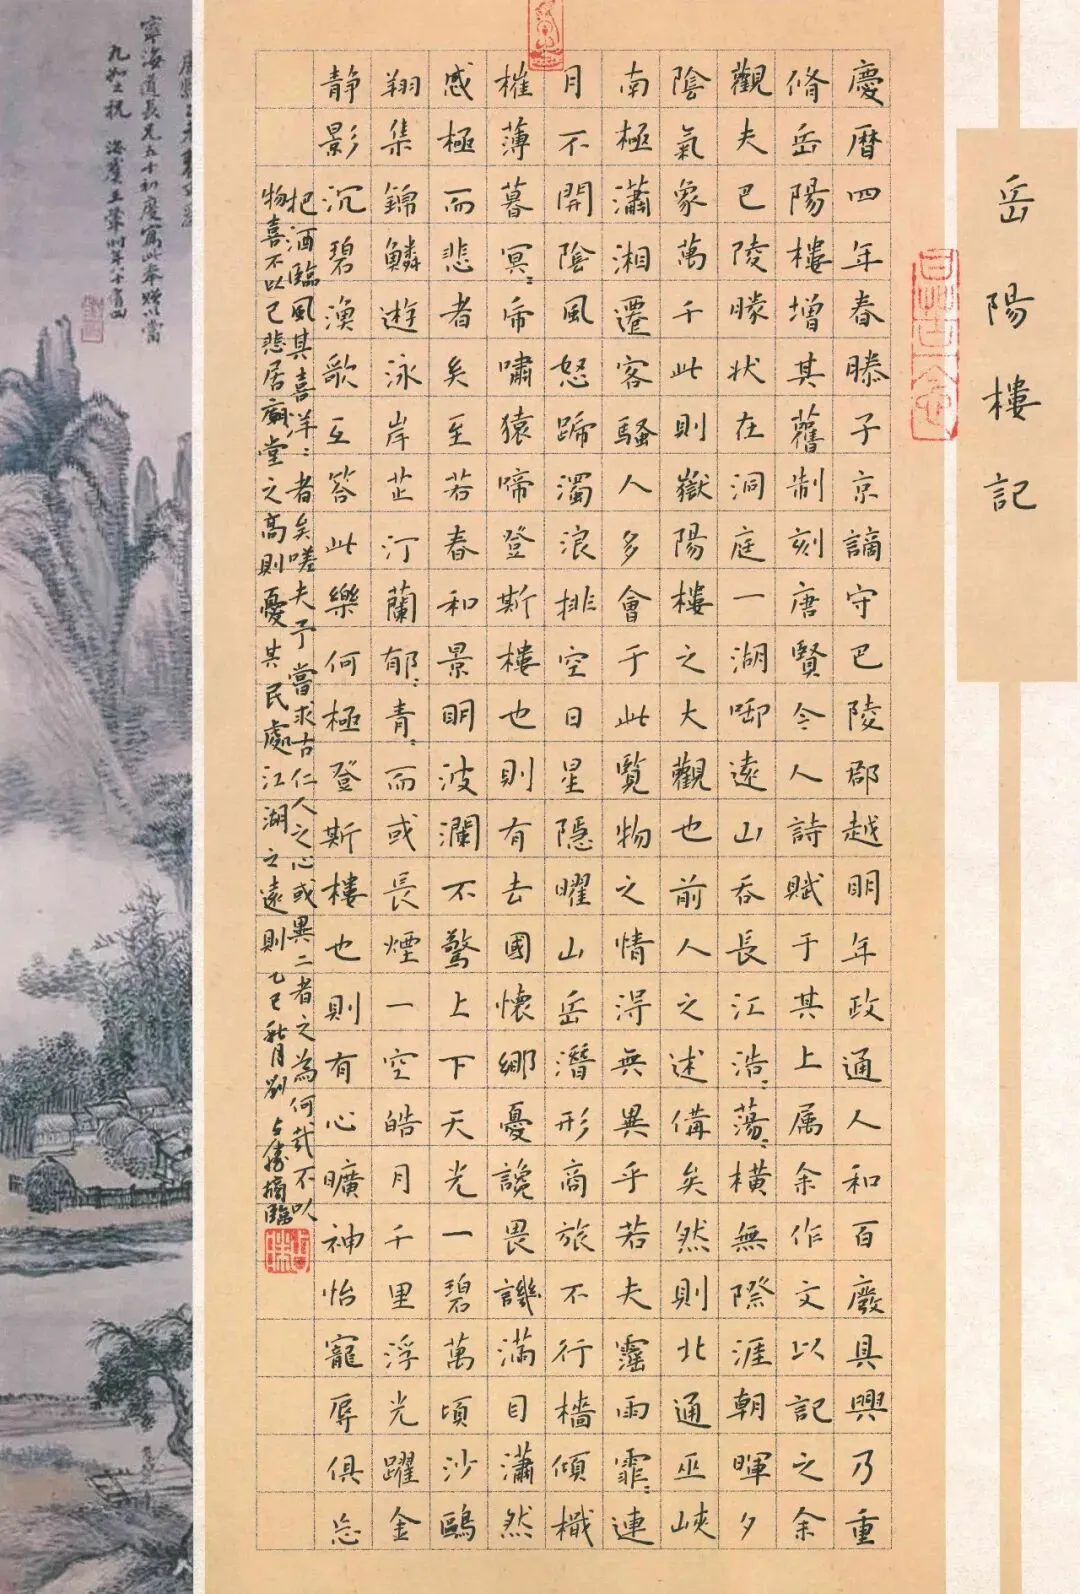 岳陽樓記
慶暦四年春滕子京謫守巴陵郡越明年政通人和百廢具興乃重
脩岳陽樓增其舊制刻唐賢今人詩賦于其上属余作文以記之余
觀夫巴陵勝状在洞庭一湖啣遠山吞長江浩〻蕩〻橫無際涯朝暉夕
陰氣象萬千此則嶽陽樓之大觀也前人之述俻矣然則北通巫峽
南極瀟湘遷客騷人多會于此覽物之情淂無異乎若夫霪雨霏〻連
月不開陰風怒蹄濁浪排空日星隱曜山岳潛形商旅不行檣傾檝
摧薄暮冥〻帝嘯猿啼登斯樓也則有去國懷鄉憂讒畏譏滿目瀟然
感極而悲者矣至若春和景明波瀾不驚上下天光一碧萬頃沙鷗
翔集錦鱗遊泳岸芷汀蘭郁〻青〻而或長煙一空皓月千里浮光躍金
静影沉碧漁歌互答此樂何極登斯樓也則有心曠神怡寵辱俱忘
把酒臨風其喜洋〻者矣嗟夫予嘗求古仁人之心或異二者之為何哉不以
物喜不以己悲居廟堂之高則憂其民處江湖之遠則 乙巳秋月劉占勝摘臨
寧海道長兄五十初度寫此奉贈以當
九如之祝 海虞王翬時年八十有四